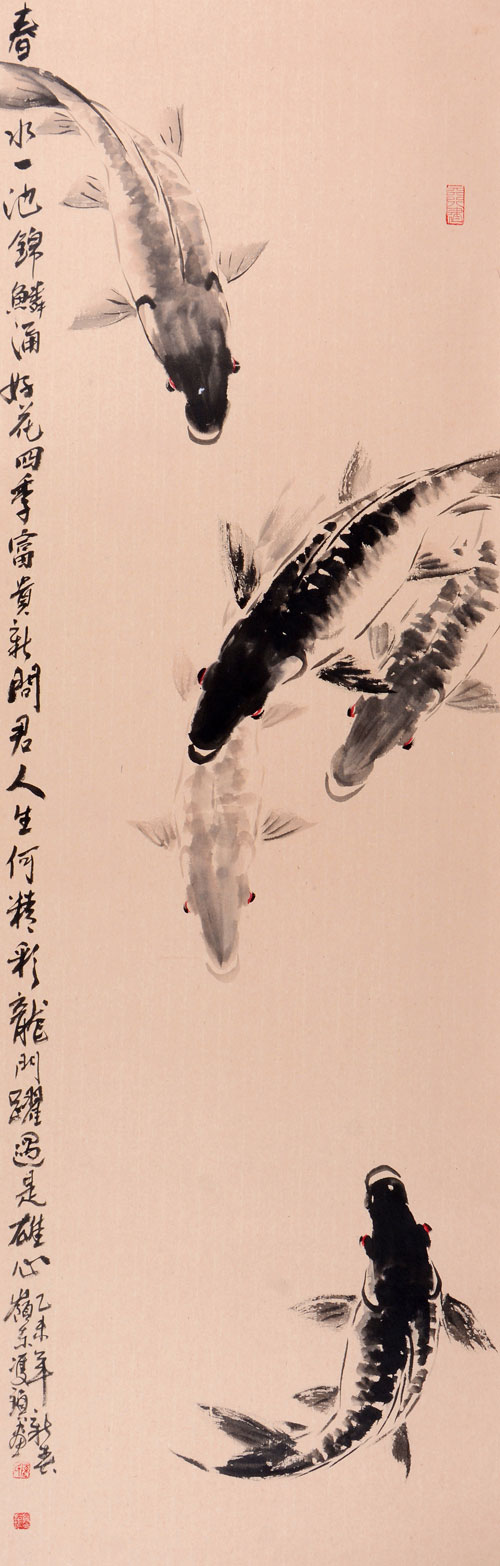 春水一池錦鱗涌好花四季富貴新問君人生何精彩龍門躍過是雄心
乙未年新春
嶺东畫